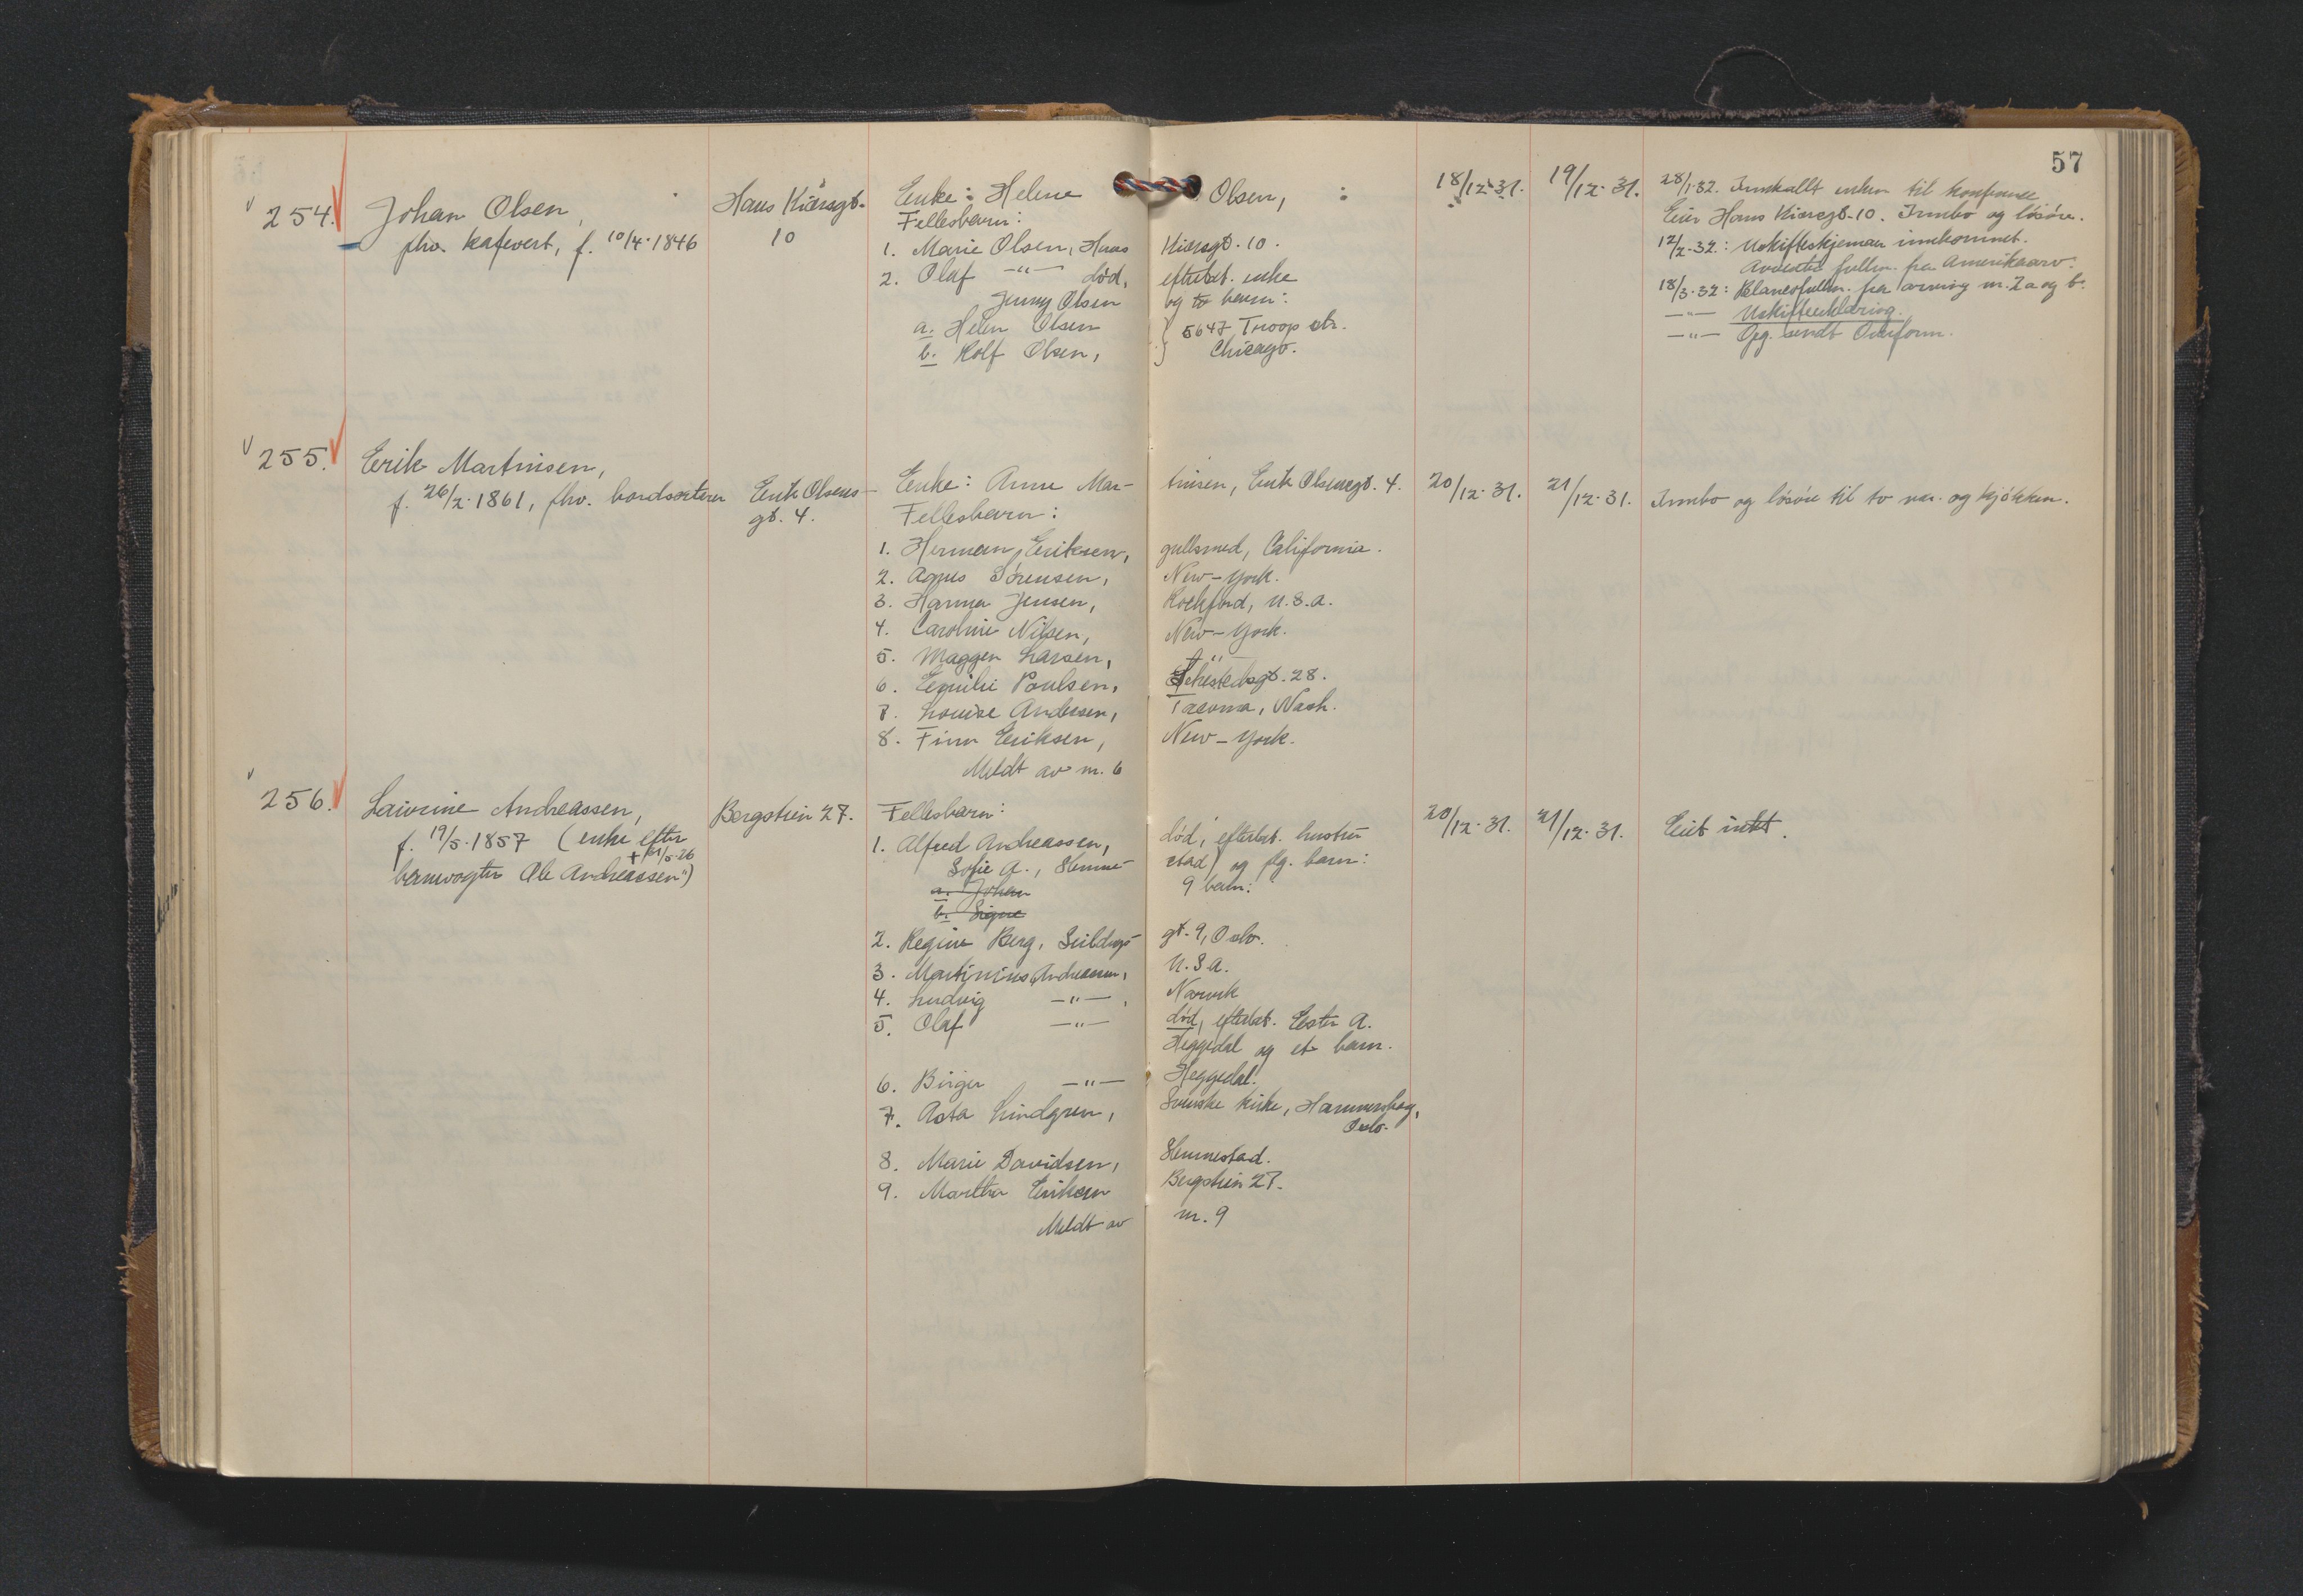 57
254. Johan Olsen,
fhv. kafevert, f. 10/4-1846
Hans Kiærsgt.
10
Enke: Helene Olsen,
Fellesbarn:
1. Marie Olsen, Hans Kiærsgt. 10.
2. Olaf —"— død, efterlat. enke
Jenny Olsen og to barn:
a. Helen Olsen } 5647 Troop str.
b. Rolf Olsen, } Chicago.
18/12-31.
19/12-31.
28/1-32. Innkallt enken til konferanse
Eier Hans Kiærsgt. 10. Innbo og løsøre.
12/2-32: Uskifteskjemaer innkommet.
fullm. fra Amerikaarv.
18/3-32: Blancofullm. fra arving nr. 2 a og b.
—"— Uskifteerklæring.
—"— Opg. sendt
255. Erik Martinsen,
f. 26/2-1861, fhv. bordsorterer
Erik Olsens-
gt. 4.
Enke: Anne Martinsen, Erik Olsensgt. 4.
Fellesbarn:
1. Herman Eriksen, gullsmed, California.
2. Agnes Sørensen, New-York.
3. Hanna Jensen, Rockford, U.S.A.
4. Caroline Nilsen, New-York.
5. Maggen Larsen, —"—
6. Emilie Poulsen, Sehestedsgt. 28.
7. Louise Andersen, Tacoma, Wash.
8. Finn Eriksen, New-York.
Meldt av nr. 6
20/12-31.
21/12-31.
Innbo og løsøre til to vær. og kjøkken.
256. Laurine Andreassen,
f. 19/5-1857 (enke efter
banevogter Ole Andreassen")
Bergstien 27.
Fellesbarn:
1. Alfred Andreassen, død, efterlat. hustru
Sofie A., Slemmestad og flg. barn:
a. Johan 9 barn:
b. Signe
2. Regine Berg, gt. 9, Oslo.
3. Martinius Andreassen, U.S.A.
4. Ludvig —"—, Narvik
5. Olaf —"— død, efterlat. Ester A.
Heggedal og et barn.
6. Birger —"— Heggedal.
7. Asta Lindgren, Svenske kirke, Hammersborg,
Oslo.
8. Marie Davidsen, Slemmestad.
9. Martha Eriksen Bergstien 27.
Meldt av nr. 9
20/12-31.
21/12-31.
Eiet intet.